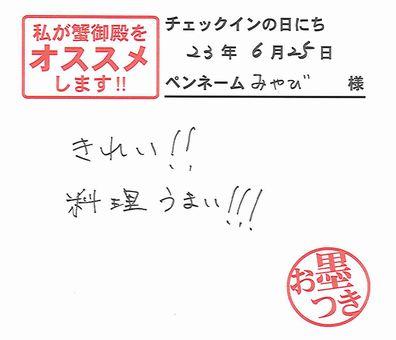 私が蟹御殿を
オススメ
します!!
チェックインの日にち
23年 6月25日
ペンネーム みやび 様
きれい!!
料理うまい!!!
お墨
つき